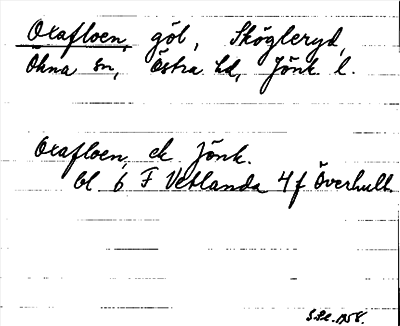 Oxafloen, göl, Skögleryd,
Ökna sn, Östra hd, Jönk. l.
Oxafloen, ek Jönk.
bl. 6 F Vetlanda 4 f Överhult